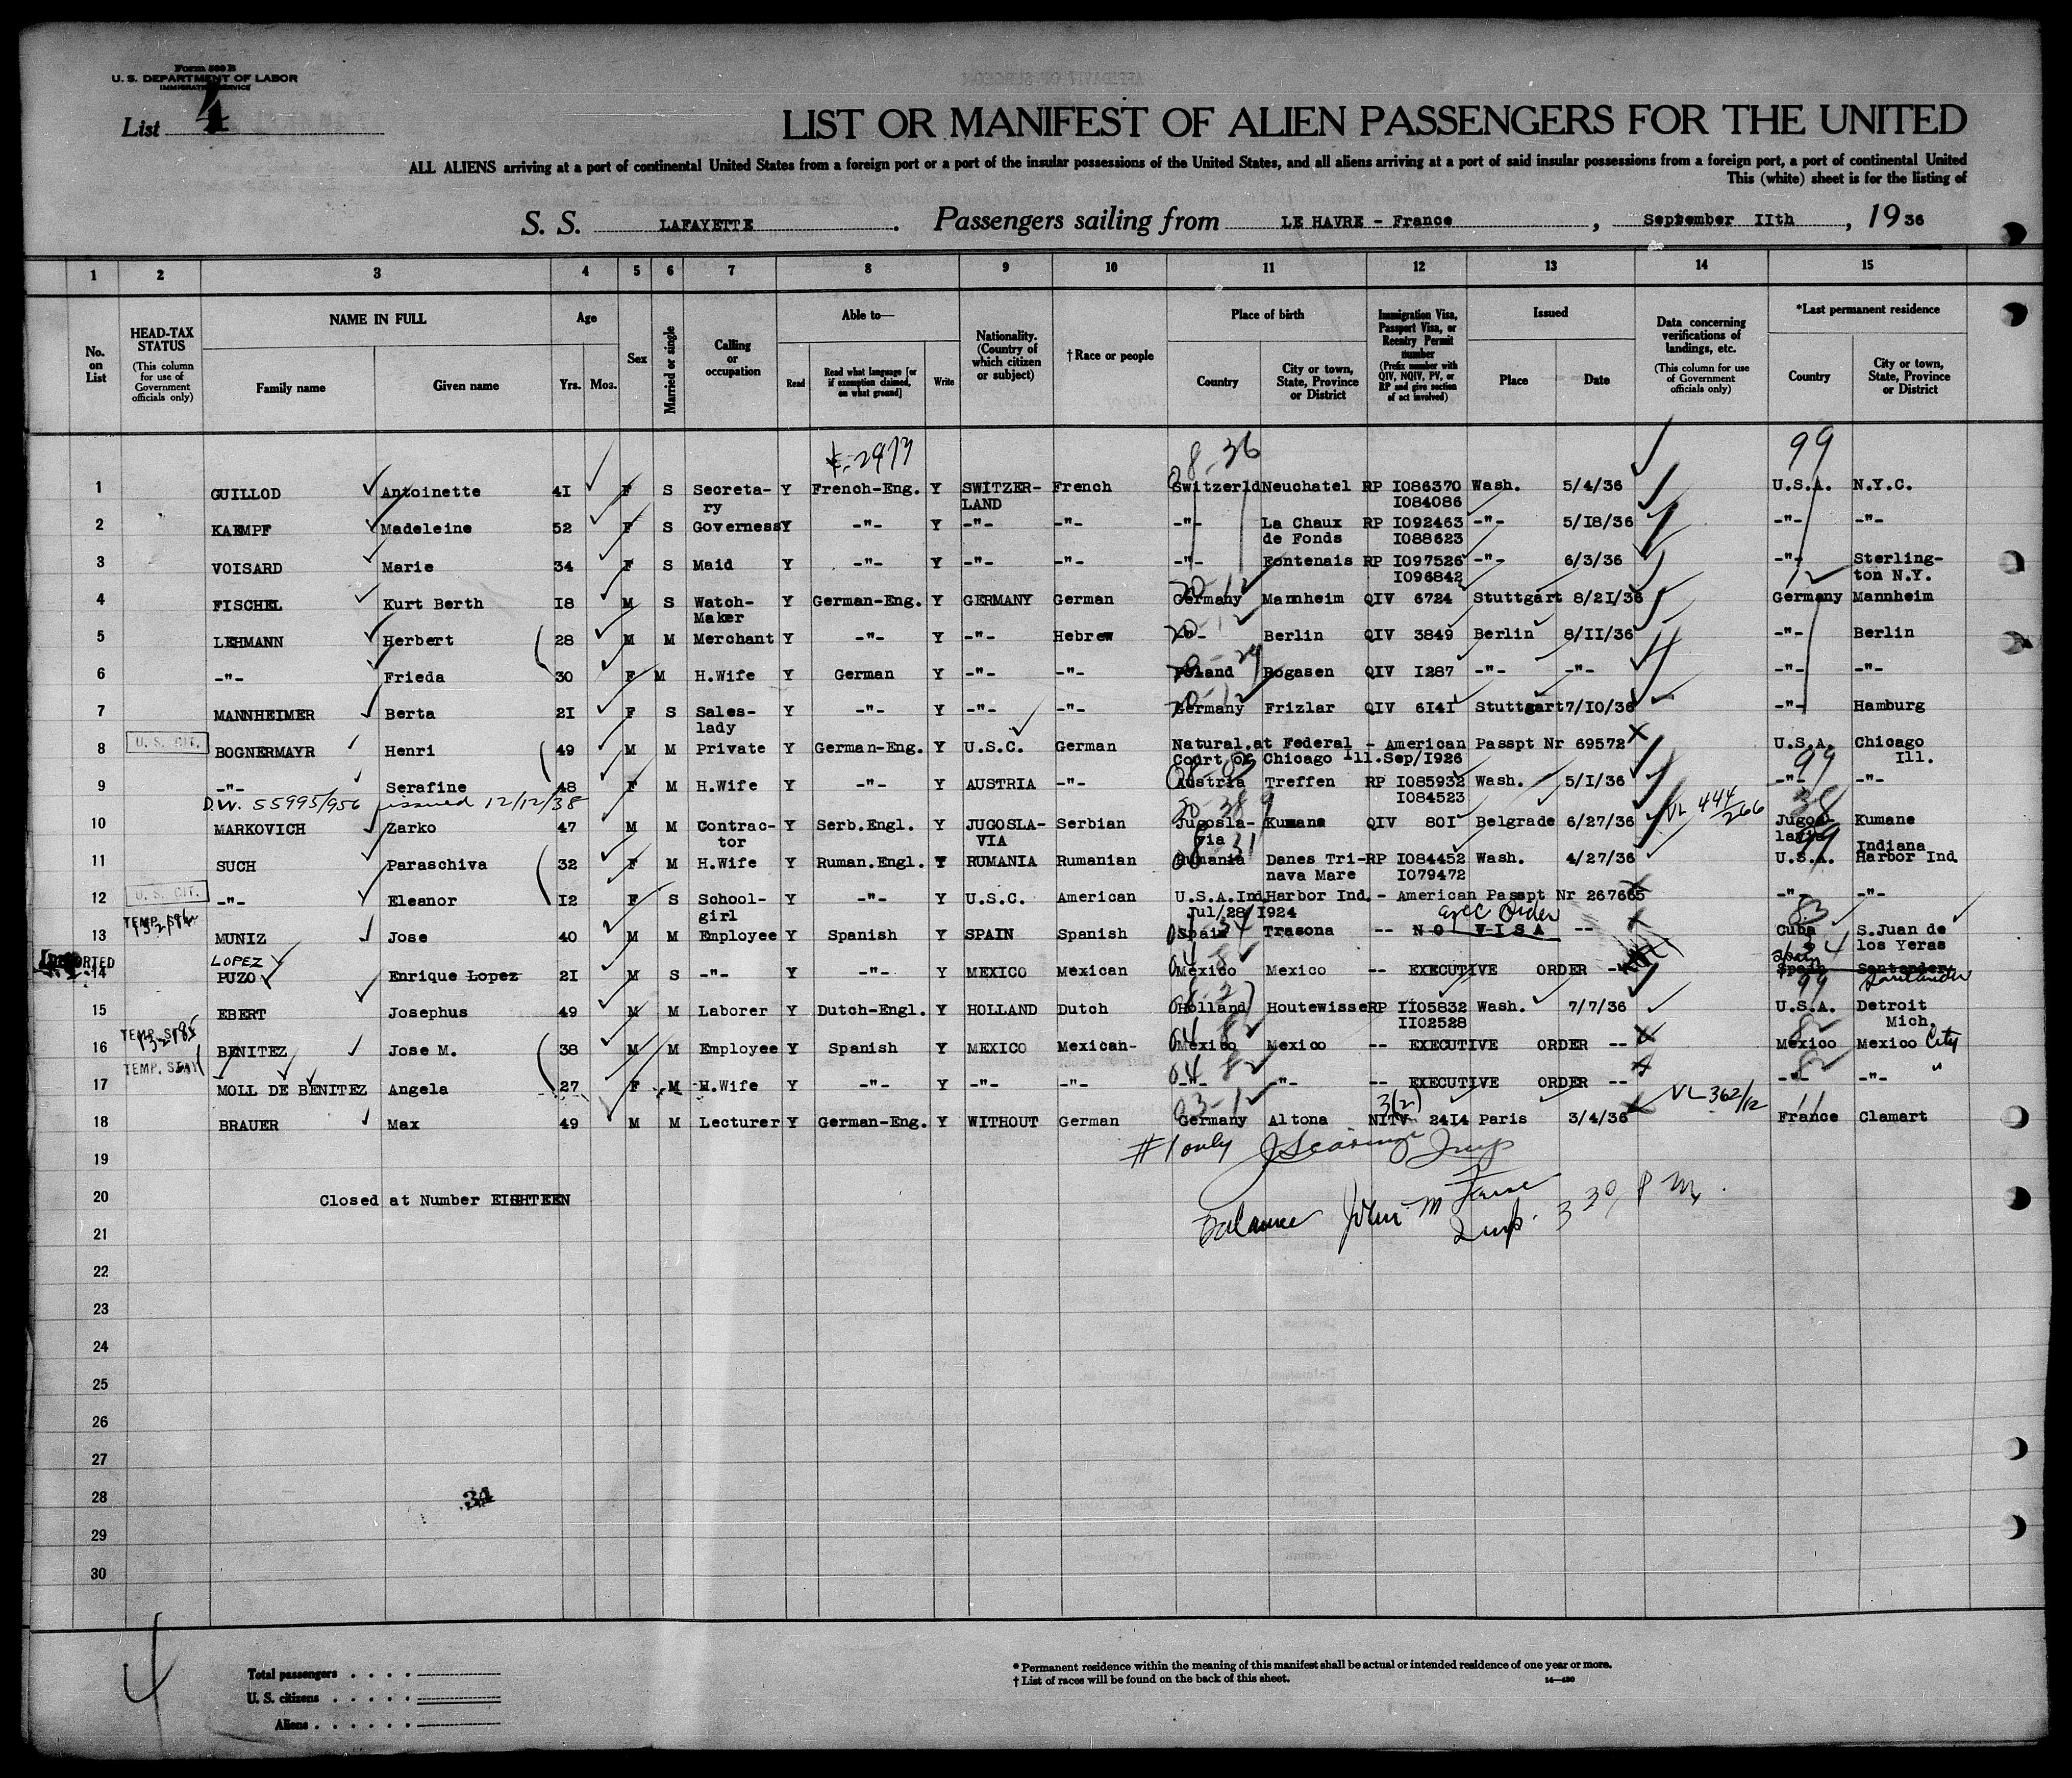 Form 500 B
U. S. DEPARTMENT OF LABOR
IMMIGRATION SERVICE
List 4
LIST OR MANIFEST OF ALIEN PASSENGERS FOR THE UNITED
ALL ALIENS arriving at a port of continental United States from a foreign port or a port of the insular possessions of the United States, and all aliens arriving at a port of said insular possessions from a foreign port, a port of continental United
This (white) sheet is for the listing of
S. S. LAFAYETTE. Passengers sailing from LE HAVRE - France, September IIth, 19 36
1 2 3 4 5 6 7 8 9 10 11 12 13 14 15
No. on List
HEAD-TAX STATUS (This column for use of Government officials only)
NAME IN FULL
Family name Given name
Age
Yrs. Mos.
Sex
Married or single
Calling or occupation
Able to—
Read Read what language [or if exemption claimed, on what ground] Write
Nationality. (Country of which citizen or subject)
† Race or people
Place of birth
Country City or town, State, Province or District
Immigration Visa, Passport Visa, or Reentry Permit number (Prefix number with QIV, NQIV, PV, or RP and give section of act involved)
Issued
Place Date
Data concerning verifications of landings, etc. (This column for use of Government officials only)
*Last permanent residence
Country City or town, State, Province or District
8-36 99
1 GUILLOD Antoinette 4I F S Secreta- Y French-Eng. Y SWITZER- French Switzerld Neuchatel RP I086370 Wash. 5/4/36 U.S.A. N.Y.C.
ry LAND I084086
2 KAEMPF Madeleine 52 F S Governess Y -"- Y -"- -"- -"- La Chaux RP I092463 -"- 5/I8/36 -"- -"-
de Fonds I088623
3 VOISARD Marie 34 F S Maid Y -"- Y -"- -"- -"- Fontenais RP I097526 -"- 6/3/36 -"- Sterling-
I096842 ton N.Y.
20-12 12
4 FISCHEL Kurt Berth I8 M S Watch- Y German-Eng. Y GERMANY German Germany Mannheim QIV 6724 Stuttgart 8/2I/36 Germany Mannheim
Maker
5 LEHMANN Herbert 28 M M Merchant Y -"- Y -"- Hebrew -"- Berlin QIV 3849 Berlin 8/II/36 -"- Berlin
6 -"- Frieda 30 F M H.Wife Y German Y -"- -"- Poland Rogasen QIV I287 -"- -"- -"- -"-
7 MANNHEIMER Berta 2I F S Sales- Y -"- Y -"- -"- Germany Frizlar QIV 6I4I Stuttgart 7/I0/36 -"- Hamburg
lady
U. S. CIT.
8 BOGNERMAYR Henri 49 M M Private Y German-Eng. Y U.S.C. German Natural.at Federal - American Passpt Nr 69572 U.S.A. Chicago
Court of Chicago Ill.Sep/I926 Ill.
99
9 -"- Serafine 48 F M H.Wife Y -"- Y AUSTRIA -"- Austria Treffen RP I085932 Wash. 5/I/36 -"- -"-
I084523
D.W. 55995/956 issued 12/12/38
VL 444/266
10 MARKOVICH Zarko 47 M M Contrac- Y Serb.Engl. Y JUGOSLA- Serbian Jugosla- Kumane QIV 80I Belgrade 6/27/36 Jugos- Kumane
tor VIA via lavia
Indiana
11 SUCH Paraschiva 32 F M H.Wife Y Ruman.Engl. Y RUMANIA Rumanian Rumania Danes Tri- RP I084452 Wash. 4/27/36 U.S.A. Harbor Ind
nava Mare I079472
U. S. CIT.
12 -"- Eleanor I2 F S School- Y -"- Y U.S.C. American U.S.A.Ind Harbor Ind. - American Passpt Nr 267665 -"- -"-
girl Jul/28/I924
Exec Order 83
13 MUNIZ Jose 40 M M Employee Y Spanish Y SPAIN Spanish Spain Trasona -- NO VISA -- Cuba S.Juan de
los Yeras
LOPEZ
14 PUZO Enrique Lopez 2I M S -"- Y -"- Y MEXICO Mexican Mexico Mexico -- EXECUTIVE ORDER -- Spain Santander
Spain Santander
99
15 EBERT Josephus 49 M M Laborer Y Dutch-Engl. Y HOLLAND Dutch Holland Houtewisse RP II05832 Wash. 7/7/36 U.S.A. Detroit
II02528 Mich.
04 82 82
16 BENITEZ Jose M. 38 M M Employee Y Spanish Y MEXICO Mexican- Mexico Mexico -- EXECUTIVE ORDER -- Mexico Mexico City
TEMP. STAY
04 82 82
17 MOLL DE BENITEZ Angela 27 F M H.Wife Y -"- Y -"- -"- -"- -"- -- EXECUTIVE ORDER -- -"- -"-
3(2) VL 362/12 11
18 BRAUER Max 49 M M Lecturer Y German-Eng. Y WITHOUT German Germany Altona NITV 24I4 Paris 3/4/36 France Clamart
19 #1 only Insp
20 Closed at Number EIGHTEEN
Balance John M Insp. 3 30 P M.
21
22
23
24
25
26
27
28 34
29
30
4
Total passengers
U. S. citizens
Aliens
* Permanent residence within the meaning of this manifest shall be actual or intended residence of one year or more.
† List of races will be found on the back of this sheet.
14—430